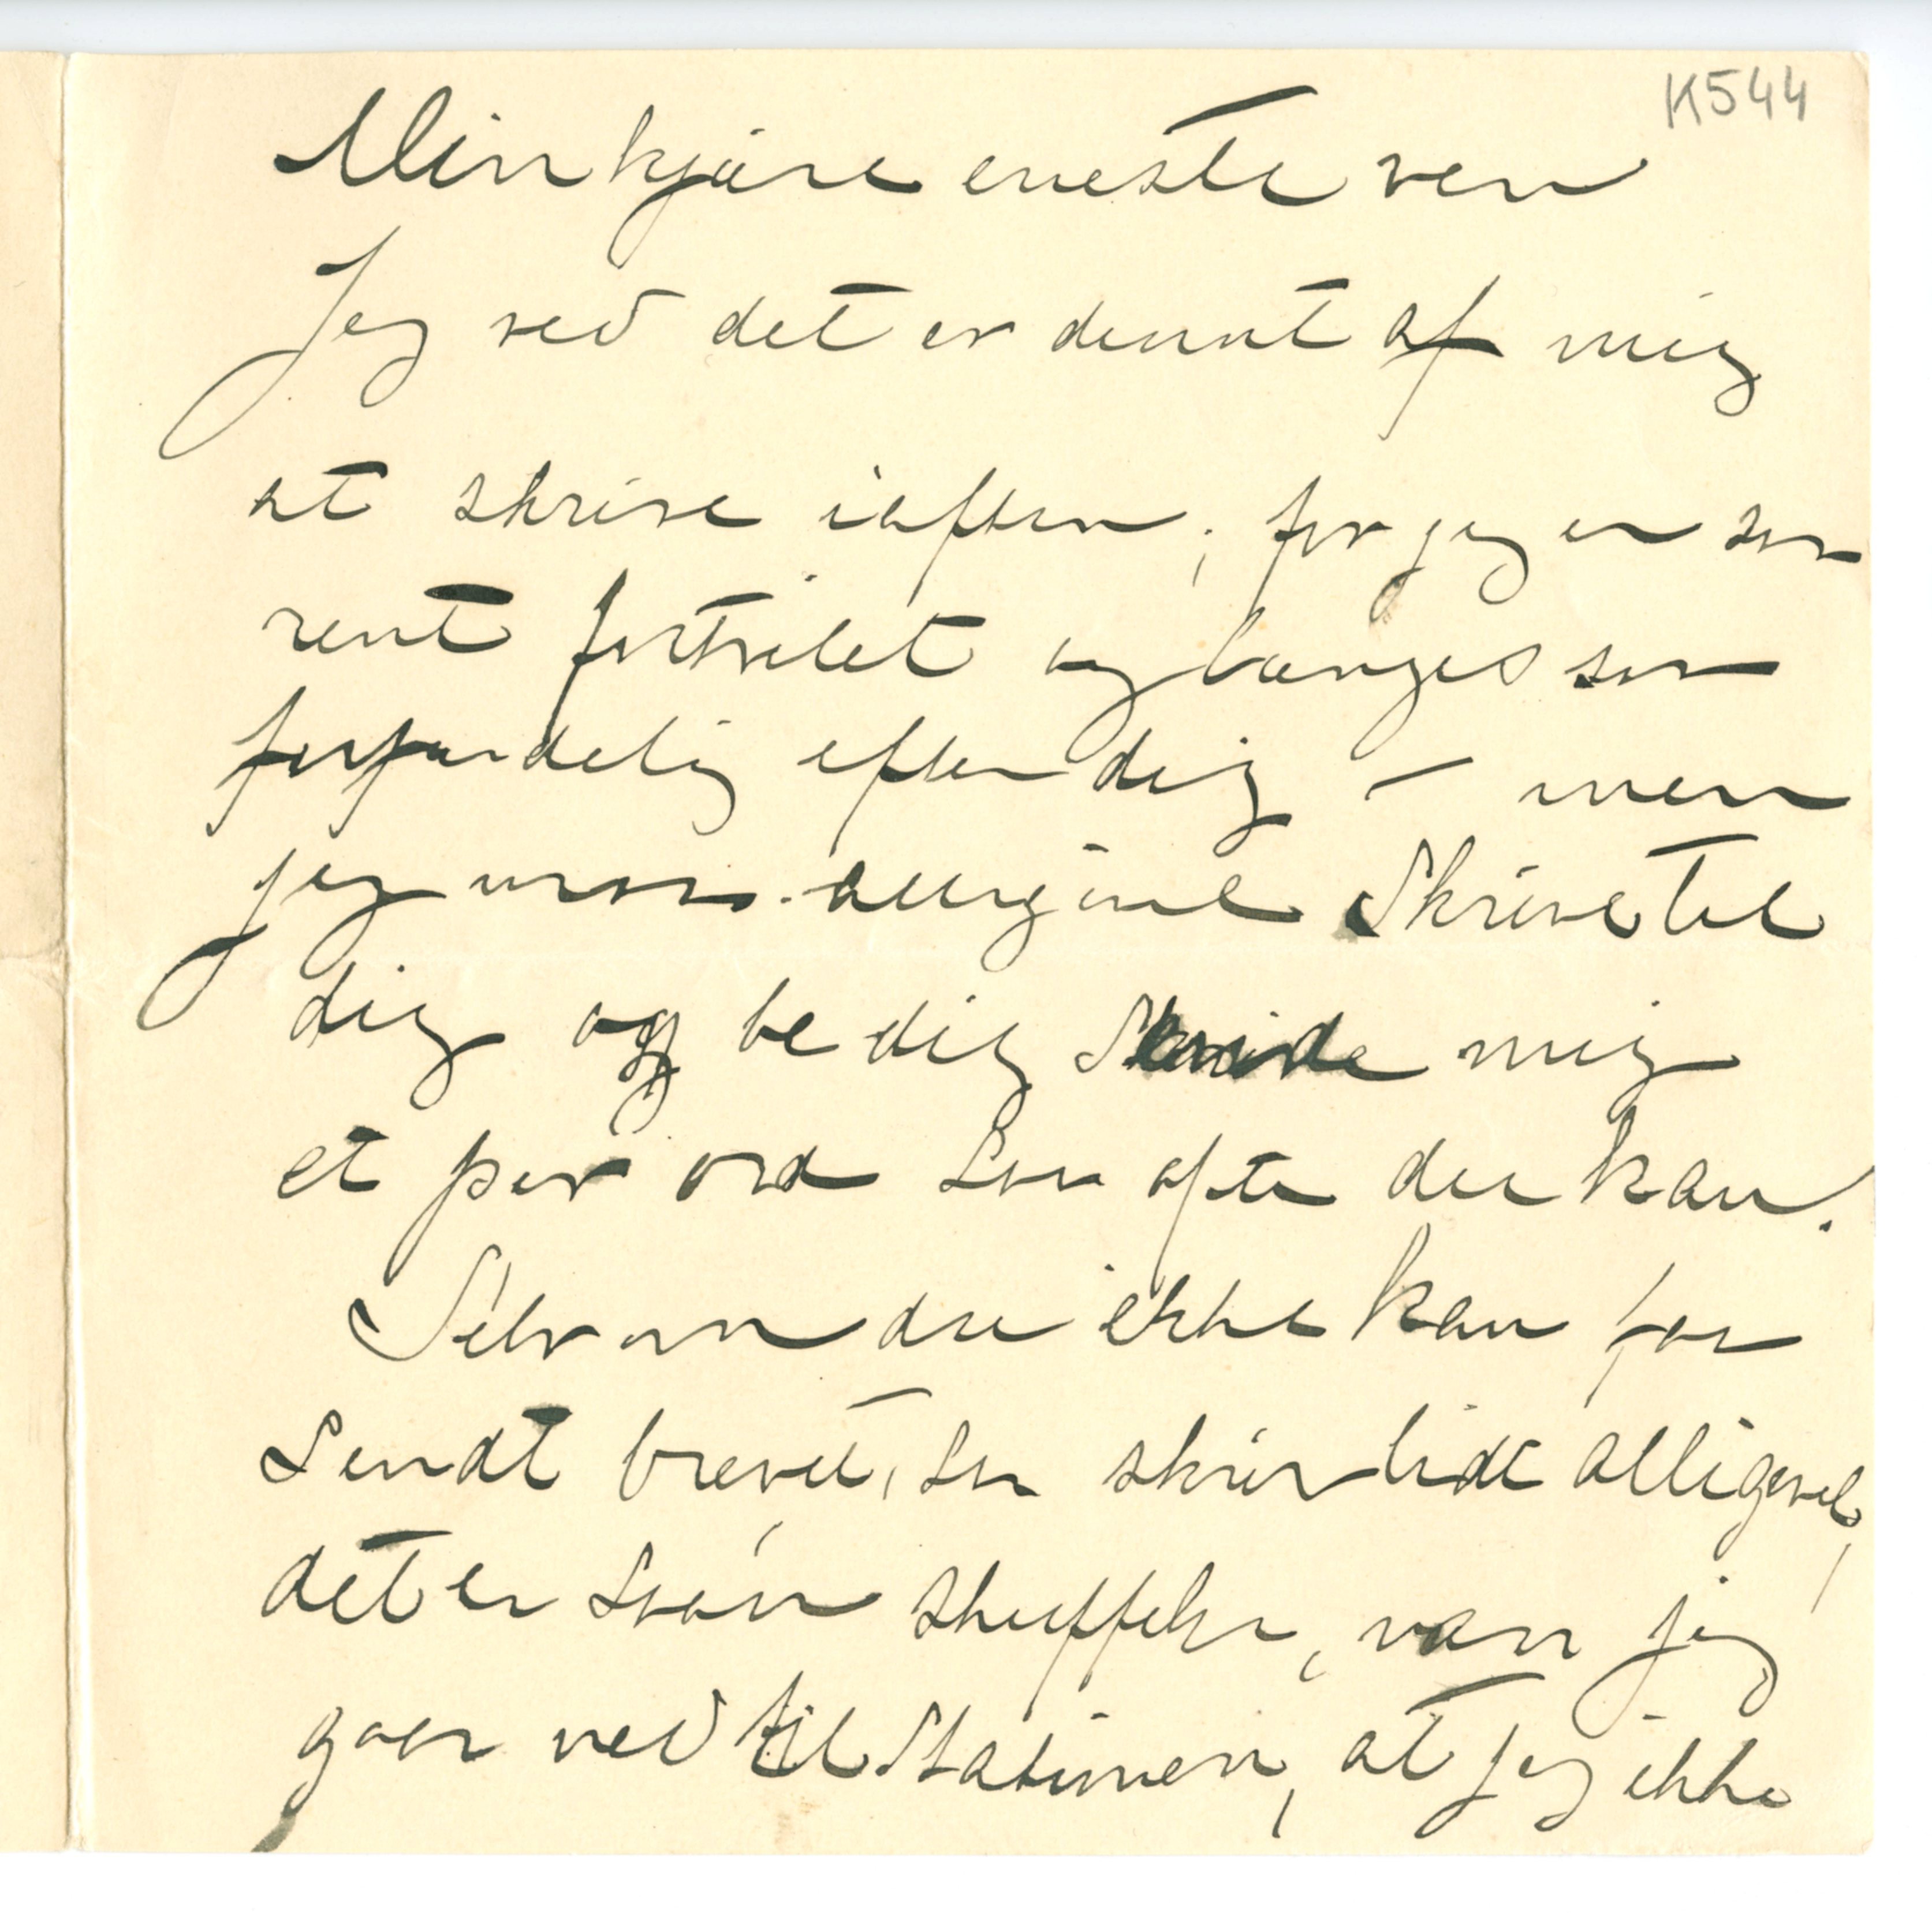 K544
Min kjære eneste ven
Jeg ved det er dumt af mig
at skrive iaften, for jeg er saa
rent fortvilet og længes saa
forfærdelig efter dig – men
jeg maa alligevel skrive til
dig og be dig skrive mig
et par ord saa ofte du kan.
Selv om du ikke kan faa
sendt brevet, saa skriv lidt alligevel,
det er saan skuffelse, naar jeg
gaar ned til Stationen, at jeg ikke